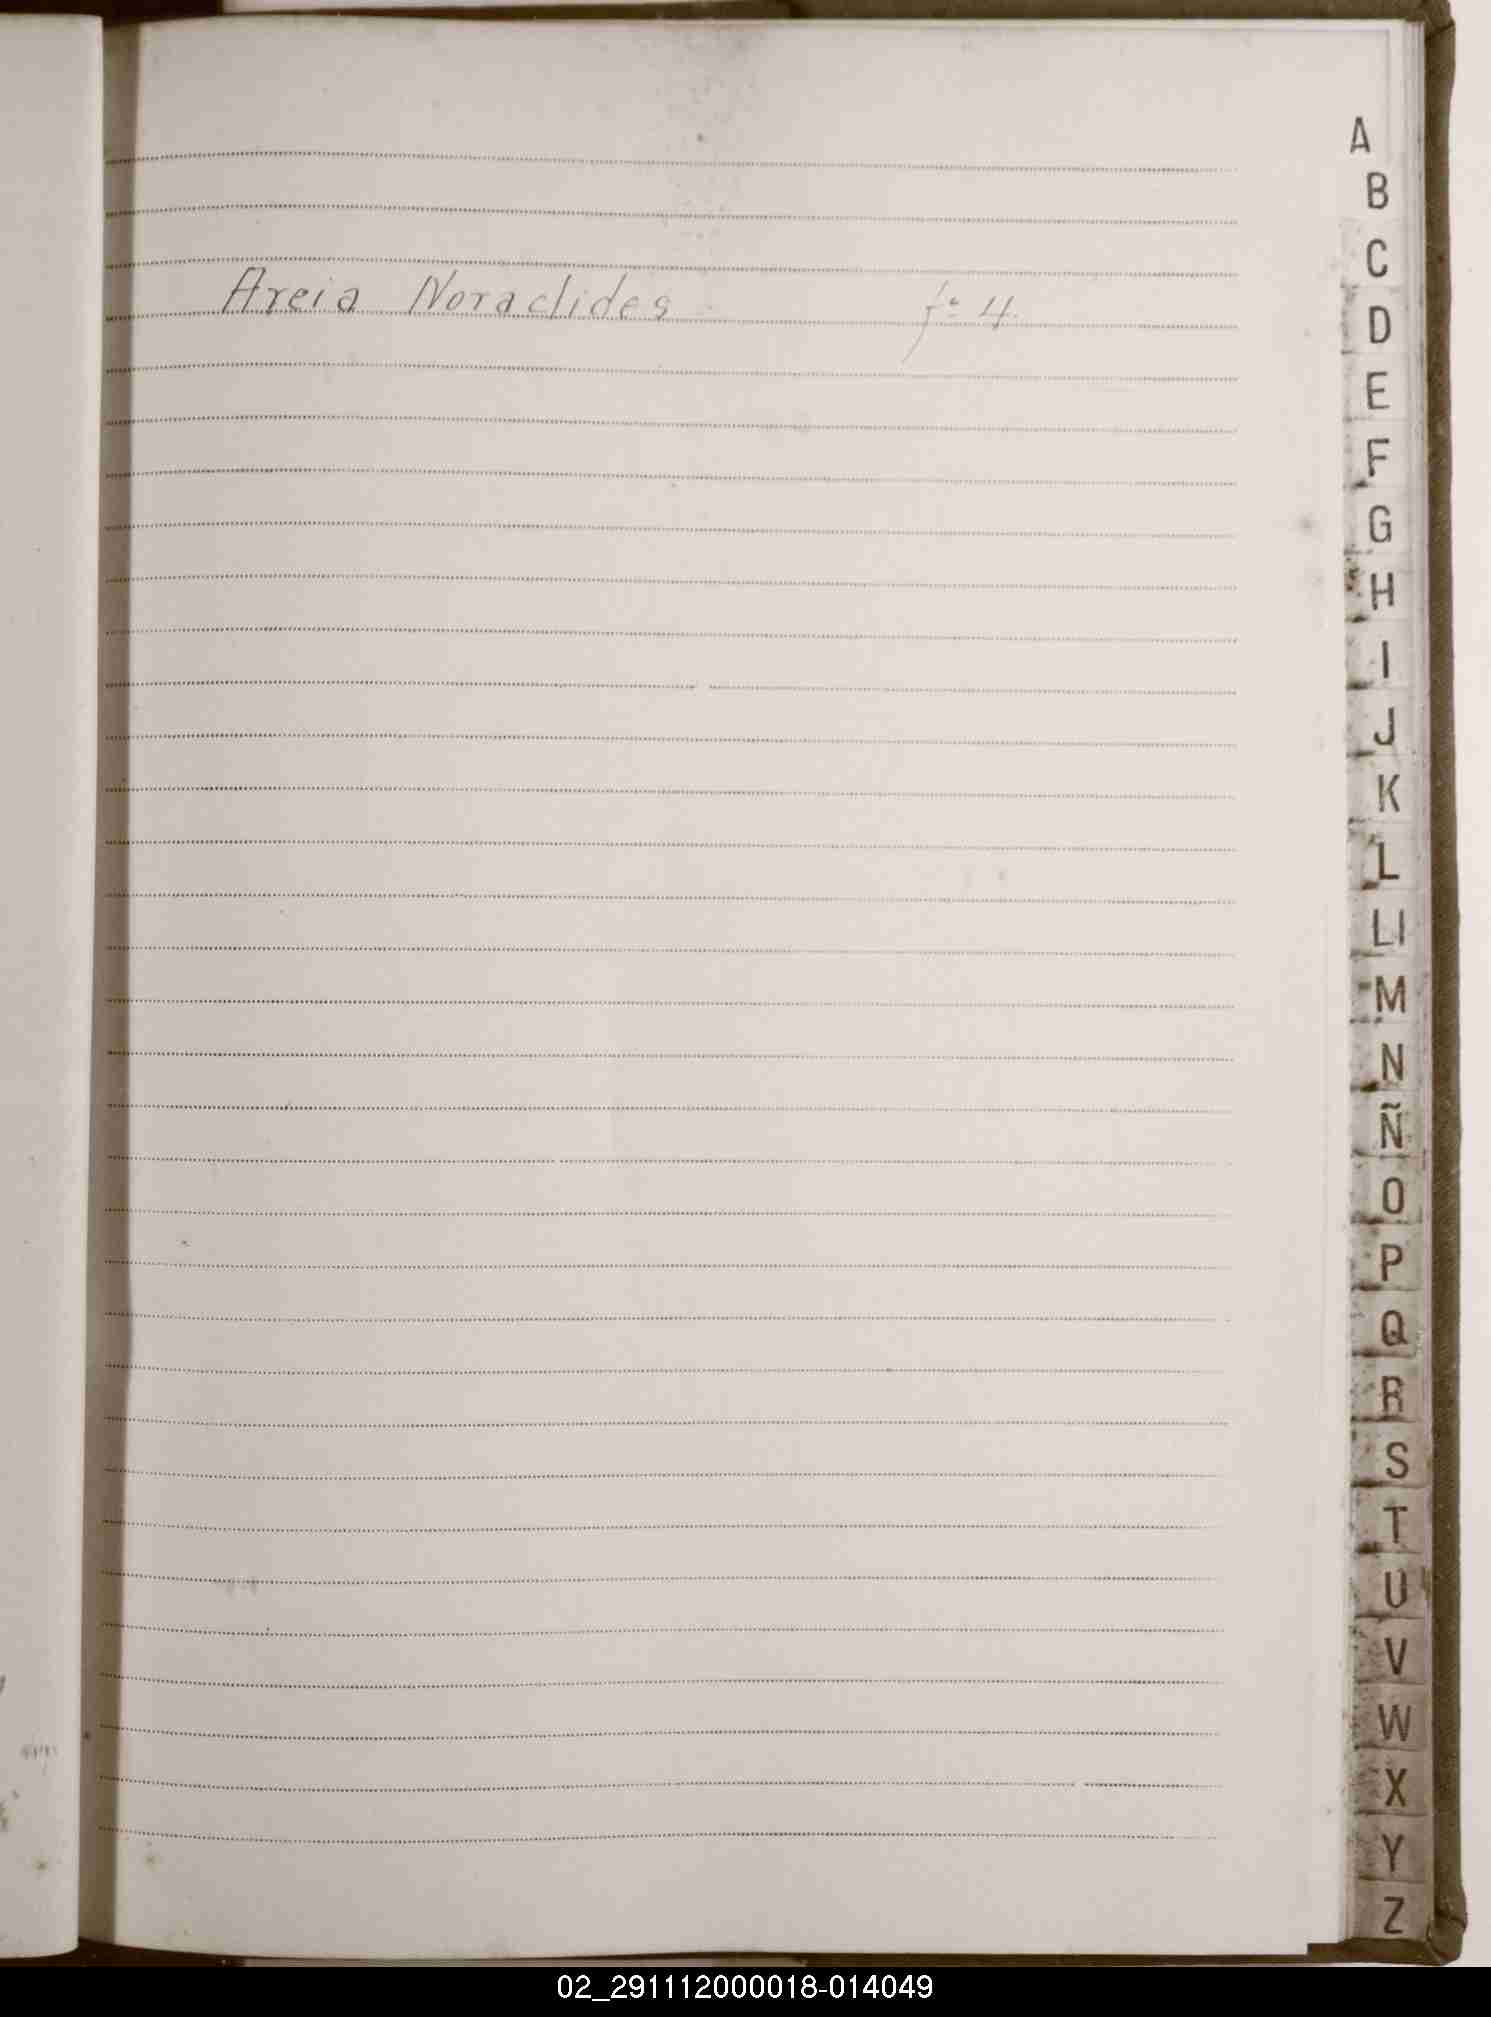 Areia Noraclides fº 4.
A
B
C
D
E
F
G
H
I
J
K
L
Ll
M
N
Ñ
O
P
Q
R
S
T
U
V
W
X
Y
Z
02_291112000018-014049